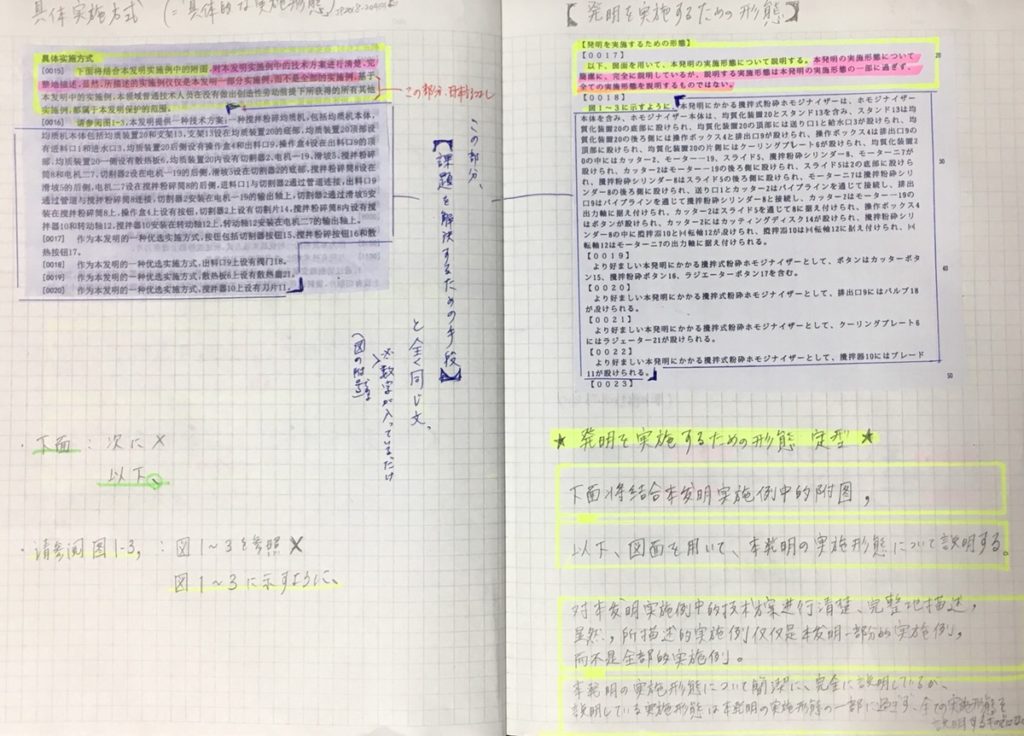 具体实施方式 (="具体的な実施形態"
具体实施方式
[0015] 下面将结合本发明实施例中的附图,对本发明实施例中的技术方案进行清楚、完
整地描述,显然,所描述的实施例仅仅是本发明一部分实施例,而不是全部的实施例。基于
本发明中的实施例,本领域普通技术人员在没有做出创造性劳动前提下所获得的所有其他
实施例,都属于本发明保护的范围。
[0016] 请参阅图1-3,本发明提供一种技术方案:一种搅拌粉碎均质机,包括均质机本体,
均质机本体包括均质装置20和支架13,支架13设在均质装置20的底部,均质装置20顶部设
有进料口1和进水口3,均质装置20后侧设有操作盒4和出料口9,操作盒4设在出料口9的顶
部,均质装置20一侧设有散热板6,均质装置20内设有切割器2、电机一19、滑坡5、搅拌粉碎
筒8和电机二7,切割器2设在电机一19的后侧,滑坡5设在切割器2的底部,搅拌粉碎筒8设在
滑坡5的后侧,电机二7设在搅拌粉碎筒8的后侧,进料口1与切割器2通过管道连接,出料口9
通过管道与搅拌粉碎筒8连接,切割器2安装在电机一19的输出轴上,切割器2通过滑坡5安
装在搅拌粉碎筒8上,操作盒4上设有按钮,切割器2上设有切割片14,搅拌粉碎筒8内设有搅
拌器10和转动轴12,搅拌器10安装在转动轴12上,转动轴12安装在电机二7的输出轴上。
[0017] 作为本发明的一种优选实施方式,按钮包括切割器按钮15、搅拌粉碎按钮16和散
热按钮17。
[0018] 作为本发明的一种优选实施方式,出料口9上设有阀门18。
[0019] 作为本发明的一种优选实施方式,散热板6上设有散热器21。
[0020] 作为本发明的一种优选实施方式,搅拌器10上设有刀片11。
この部分、日本語なし
この部分、
【課題を解決するための手段】
と全く同じ文。
※数字が入っているだけ
(図の附番)
・下面 : 次に ×
以下、
・请参阅图1-3, : 図1~3を参照 ×
図1~3に示すように、
【発明を実施するための形態】
【発明を実施するための形態】
【0017】
以下、図面を用いて、本発明の実施形態について説明する。本発明の実施形態について
簡潔に、完全に説明しているが、説明する実施形態は本発明の実施形態の一部に過ぎず、
全ての実施形態を説明するものではない。
【0018】
図1~3に示すように、本発明にかかる攪拌式粉砕ホモジナイザーは、ホモジナイザー
本体を含み、ホモジナイザー本体は、均質化装置20とスタンド13を含み、スタンド13は均
質化装置20の底部に設けられ、均質化装置20の頂部には送り口1と給水口3が設けられ、均
質化装置20の後ろ側には操作ボックス4と排出口9が設けられ、操作ボックス4は排出口9の
頂部に設けられ、均質化装置20の片側にはクーリングプレート6が設けられ、均質化装置2
0の中にはカッター2、モーター一19、スライド5、攪拌粉砕シリンダー8、モーター二7が
設けられ、カッター2はモーター一19の後ろ側に設けられ、スライド5は2の底部に設けら
れ、攪拌粉砕シリンダー8はスライド5の後ろ側に設けられ、モーター二7は攪拌粉砕シリ
ンダー8の後ろ側に設けられ、送り口1とカッター2はパイプラインを通じて接続し、排出
口9はパイプラインを通じて攪拌粉砕シリンダー8と接続し、カッター2はモーター一19の
出力軸に据え付けられ、カッター2はスライド5を通じて8に据え付けられ、操作ボックス4
はボタンが設けられ、カッター2にはカッティングディスク14が設けられ、攪拌粉砕シリ
ンダー8の中に攪拌器10と回転軸12が設けられ、攪拌器10は回転軸12に据え付けられ、回
転軸12はモーター二7の出力軸に据えけられる。
【0019】
より好ましい本発明にかかる攪拌式粉砕ホモジナイザーとして、ボタンはカッターボタ
ン15、攪拌粉砕ボタン16、ラジエーターボタン17を含む。
【0020】
より好ましい本発明にかかる攪拌式粉砕ホモジナイザーとして、排出口9にはバルブ18
が設けられる。
【0021】
より好ましい本発明にかかる攪拌式粉砕ホモジナイザーとして、クーリングプレート6
にはラジエーター21が設けられる。
【0022】
より好ましい本発明にかかる攪拌式粉砕ホモジナイザーとして、攪拌器10にはブレード
11が設けられる。
【0023】
20
30
40
50
★ 発明を実施するための形態 定型 ★
下面将结合本发明实施例中的附图,
以下、図面を用いて、本発明の実施形態について説明する。
对本发明实施例中的技术方案进行清楚、完整地描述,
显然,所描述的实施例仅仅是本发明一部分的实施例,
而不是全部的实施例。
本発明の実施形態について簡潔に、完全に説明しているが、
説明している実施形態は本発明の実施形態の一部に過ぎず、全ての実施形態を
説明するものではない